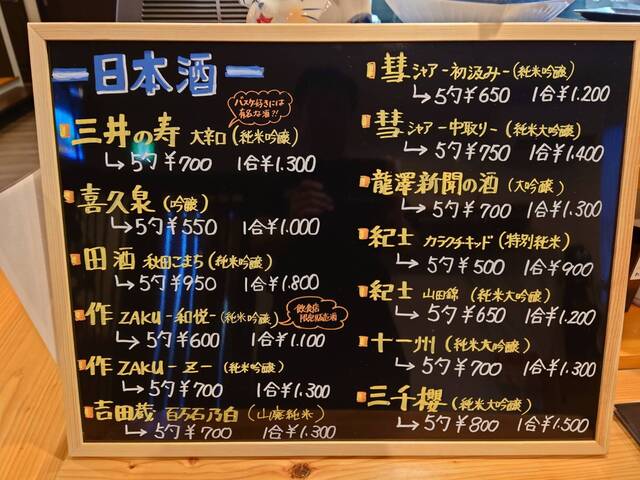 日本酒
バスケ好きには
有名な酒?!
三井の寿 大辛口(純米吟醸)
↳5勺¥700 1合¥1.300
喜久泉(吟醸)
↳5勺¥550 1合¥1.000
田酒 秋田こまち(純米吟醸)
↳5勺¥950 1合¥1.800
飲食店
限定販売酒
作 ZAKU-和悦-(純米吟醸)
↳5勺¥600 1合¥1.100
作 ZAKU-Z-(純米吟醸)
↳5勺¥700 1合¥1.300
吉田蔵 百万石乃白(山廃純米)
↳5勺¥700 1合¥1.300
彗シャア-初汲み-(純米吟醸)
↳5勺¥650 1合¥1.200
彗シャア-中取り-(純米大吟醸)
↳5勺¥750 1合¥1.400
龍澤新聞の酒(大吟醸)
↳5勺¥700 1合¥1.300
紀士 カラクチキッド(特別純米)
↳5勺¥500 1合¥900
紀士 山田錦(純米大吟醸)
↳5勺¥650 1合¥1.200
十一州(純米大吟醸)
↳5勺¥700 1合¥1.300
三千櫻(純米大吟醸)
↳5勺¥800 1合¥1.500